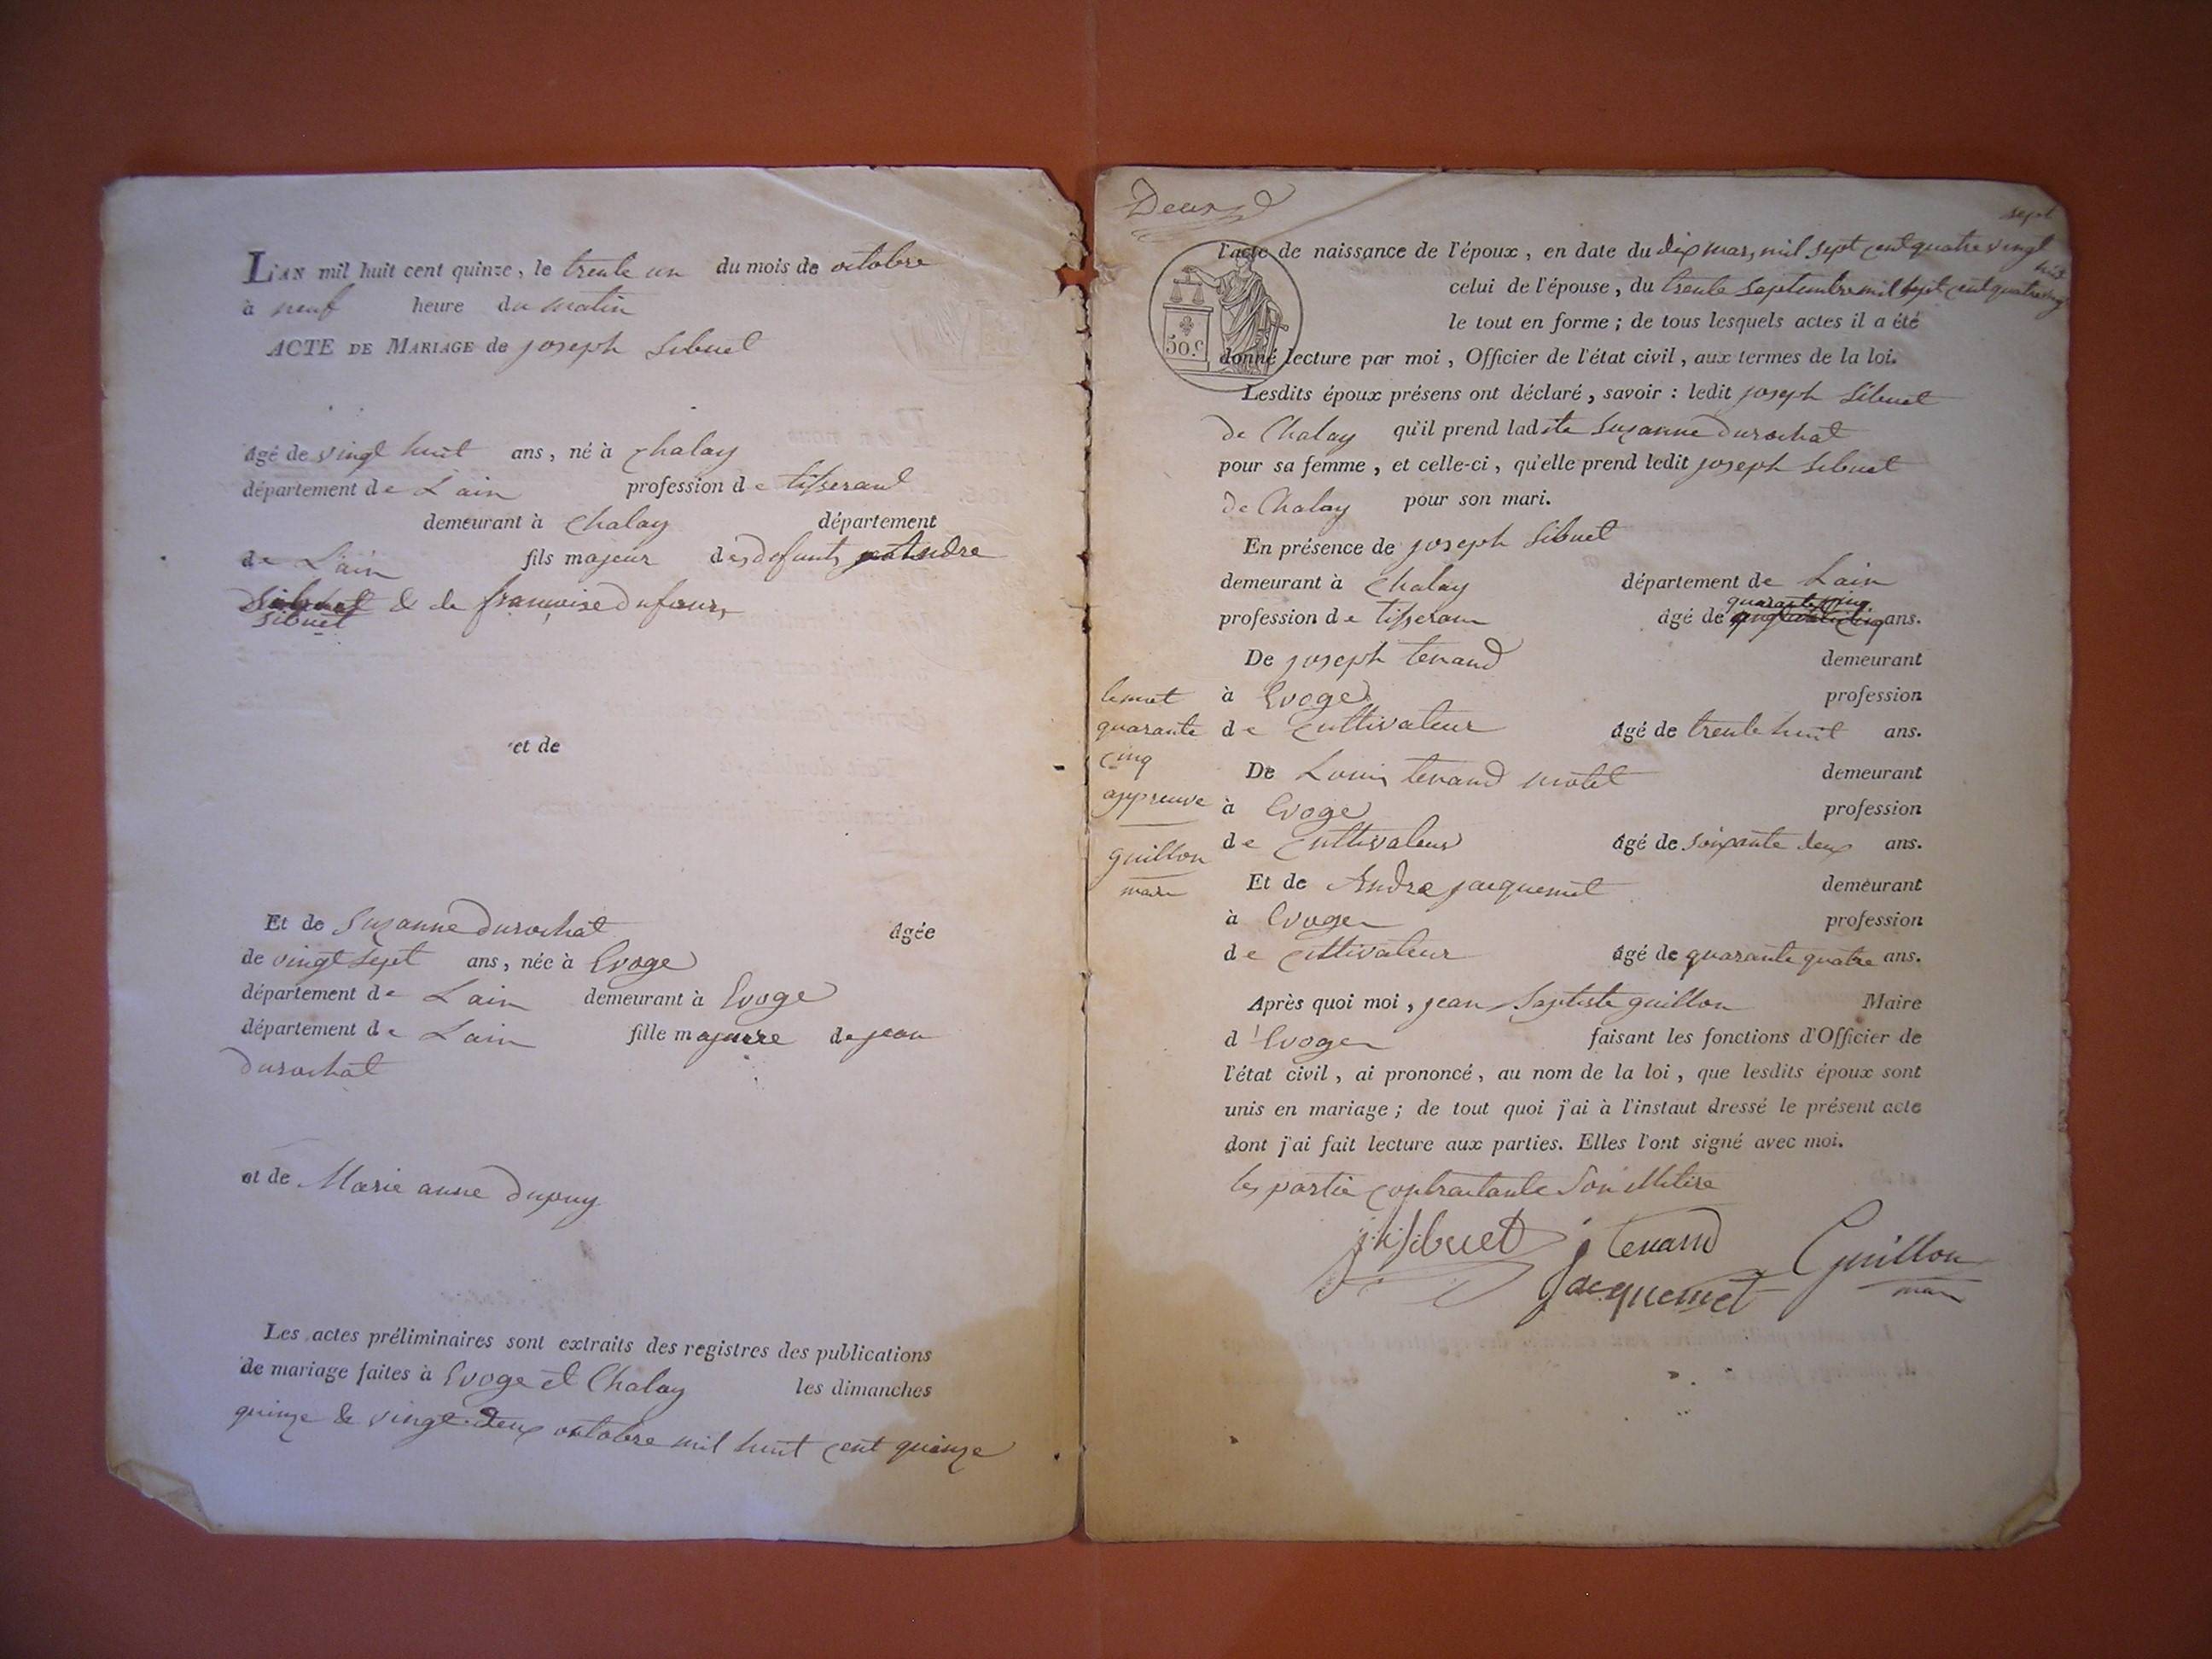 L'AN mil huit cent quinze, le trente un du mois de octobre
à neuf heure du matin
ACTE DE MARIAGE de joseph Sibuet
âgé de vingt huit ans, né à Chalay
département de Lain profession de tisserand
demeurant à Chalay département
de Lain fils majeur des defunts andre
Sibuet & de françoise dufour
Sibuet
et de
Et de Suzanne durochat âgée
de vingt sept ans, née à Evoge
département de Lain demeurant à Evoge
département de Lain fille majeure de jean
durochat
et de Marie anne dupuy
Les actes préliminaires sont extraits des registres des publications
de mariage faites à Evoge et Chalay les dimanches
quinze & vingt deux octobre mil huit cent quinze
Deux
sept
l'acte de naissance de l'époux, en date du dix mars mil sept cent quatre vingt
huit
celui de l'épouse, du trente septembre mil sept cent quatre vingt
le tout en forme; de tous lesquels actes il a été
50.c
donné lecture par moi, Officier de l'état civil, aux termes de la loi.
Lesdits époux présens ont déclaré, savoir: ledit joseph Sibuet
de Chalay qu'il prend ladite Suzanne durochat
pour sa femme, et celle-ci, qu'elle prend ledit joseph Sibuet
de Chalay pour son mari.
En présence de joseph Sibuet
demeurant à Chalay département de Lain
quarante cinq
profession de tisseran âgé de ans.
De joseph tenand demeurant
à Evoge profession
de Cultivateur âgé de trente huit ans.
De Louis tenand motet demeurant
à Evoge profession
de Cultivateur âgé de soixante deux ans.
Et de Andre jacquemet demeurant
à Evoge profession
de Cultivateur âgé de quarante quatre ans.
le mot
quarante
cinq
appreuve
guillon
maire
Après quoi moi, jean Baptiste guillon Maire
d'Evoge faisant les fonctions d'Officier de
l'état civil, ai prononcé, au nom de la loi, que lesdits époux sont
unis en mariage; de tout quoi j'ai à l'instant dressé le présent acte
dont j'ai fait lecture aux parties. Elles l'ont signé avec moi.
les partie contractante son illitire
jh Sibuet j tenand Guillon
jacquemet maire